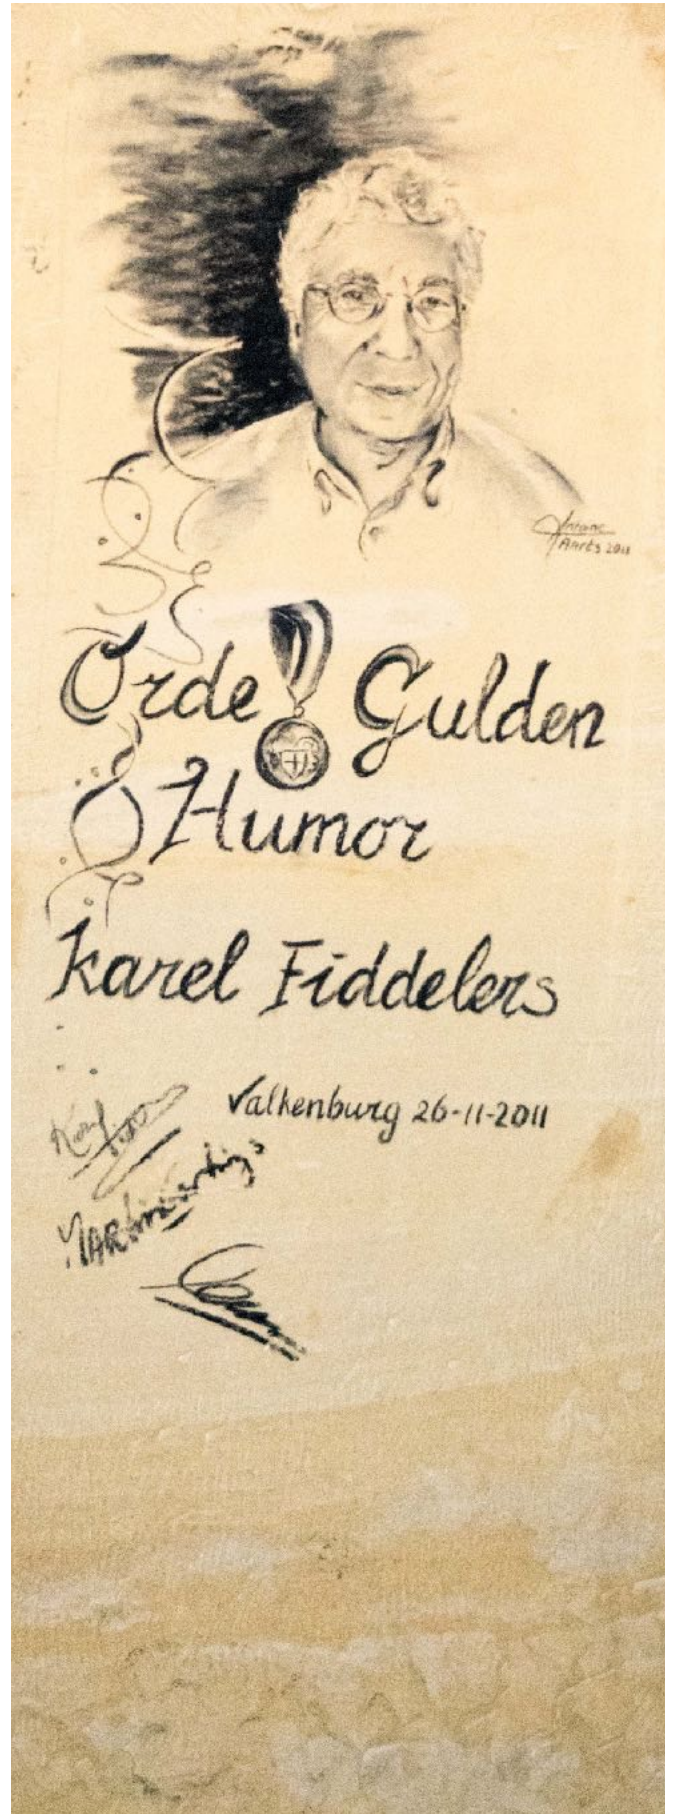 Aarts 2011
Orde Gulden
Humor
Karel Fiddelers
Valkenburg 26-11-2011